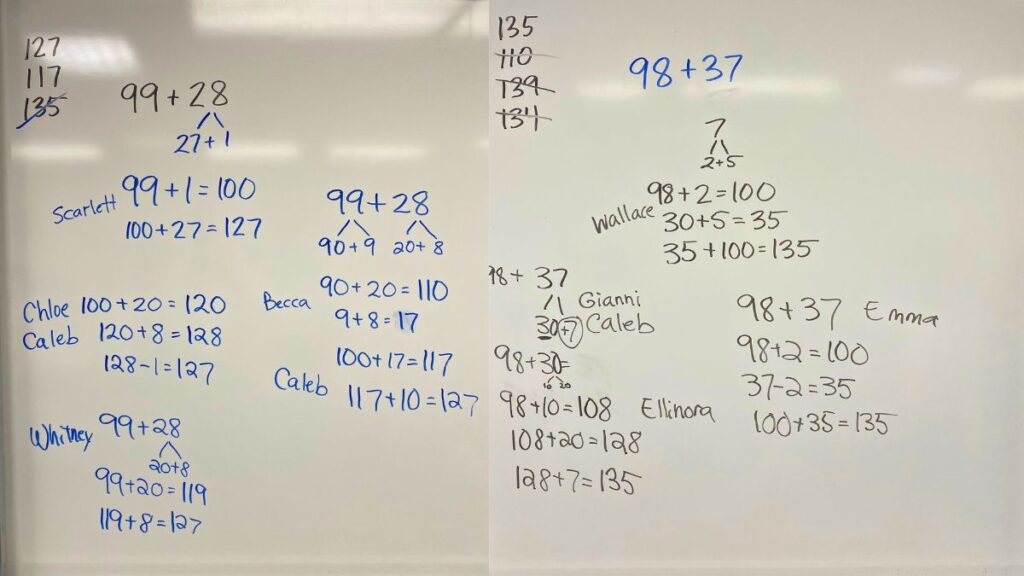 127
117
135
99 + 28
27 + 1
Scarlett 99 + 1 = 100
100 + 27 = 127
99 + 28
90 + 9 20 + 8
Becca 90 + 20 = 110
9 + 8 = 17
100 + 17 = 117
Caleb 117 + 10 = 127
Chloe 100 + 20 = 120
Caleb 120 + 8 = 128
128 - 1 = 127
Whitney 99 + 28
20 + 8
99 + 20 = 119
119 + 8 = 127
135
110
139
134
98 + 37
7
2 + 5
Wallace 98 + 2 = 100
30 + 5 = 35
35 + 100 = 135
98 + 37
30 + 7
Gianni
Caleb
98 + 30 =
10 20
98 + 10 = 108 Ellinora
108 + 20 = 128
128 + 7 = 135
98 + 37 Emma
98 + 2 = 100
37 - 2 = 35
100 + 35 = 135